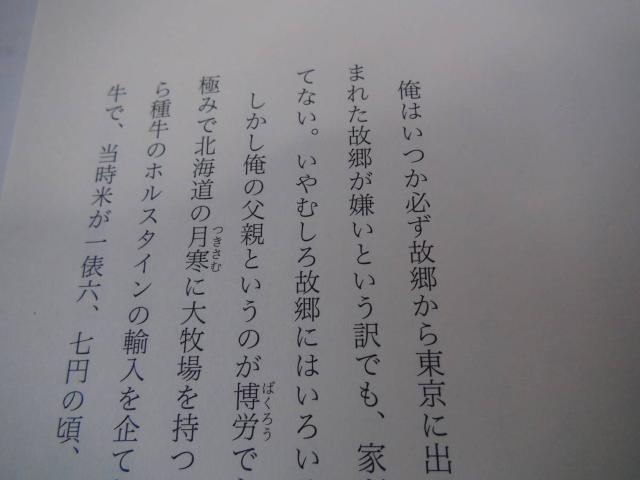 俺はいつか必ず故郷から東京に出
まれた故郷が嫌いという訳でも、家
てない。いやむしろ故郷にはいろい
しかし俺の父親というのが博労で
極みで北海道の月寒に大牧場を持つ
ら種牛のホルスタインの輸入を企て
牛で、当時米が一俵六、七円の頃、
ばくろう
つきさむ